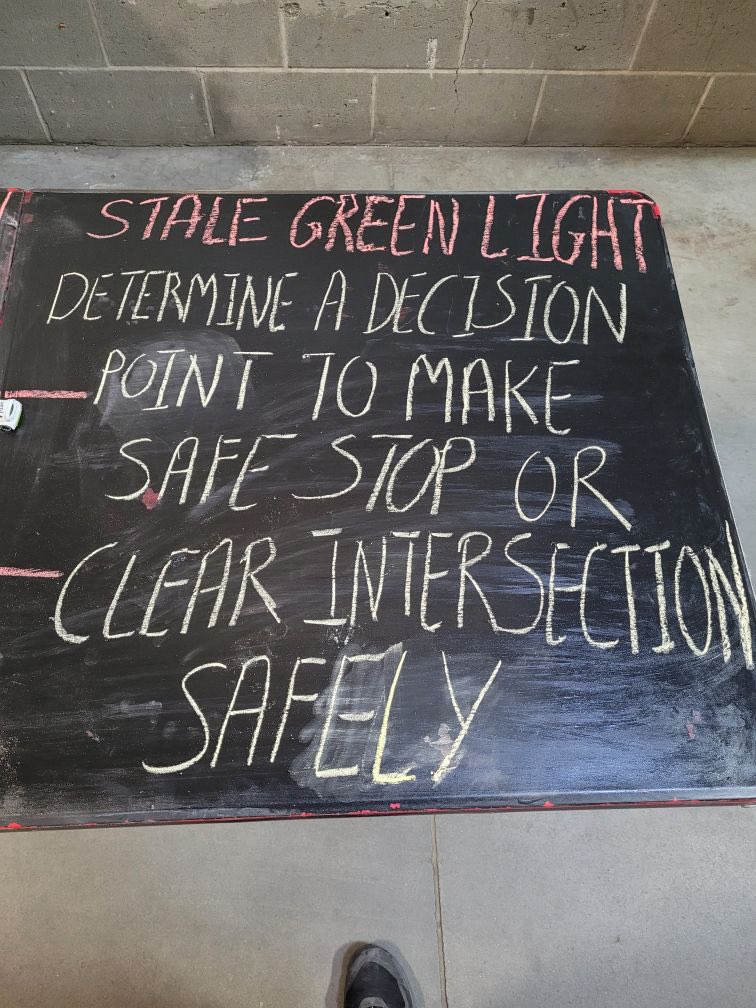 STALE GREEN LIGHT
DETERMINE A DECISION
POINT TO MAKE
SAFE STOP OR
CLEAR INTERSECTION
SAFELY